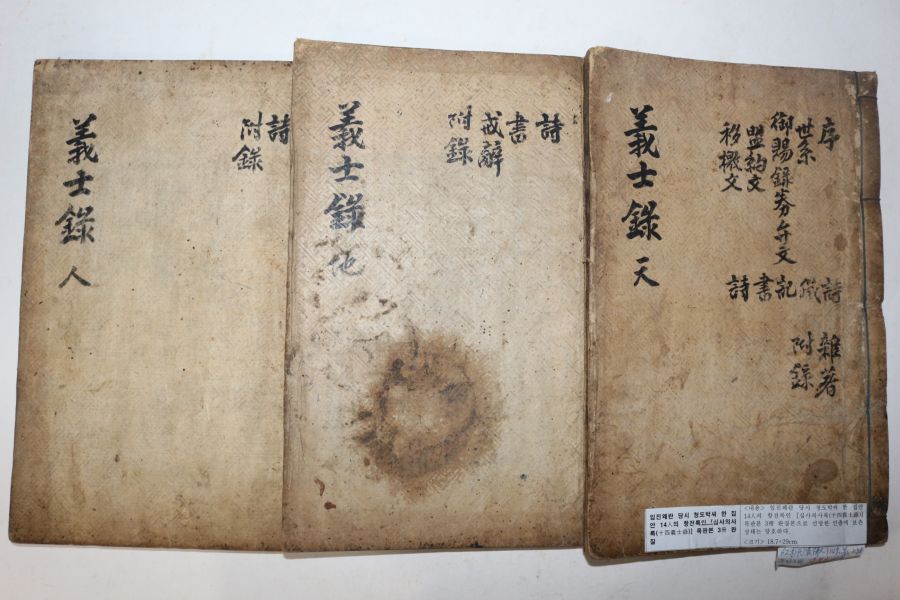 序
世系
御賜錄券弁文
盟約文
移檄文
詩
記
書
詩
雜著
附錄
義士錄 天
詩
書
戒辭
附錄
義士錄 地
詩
附錄
義士錄 人
임진왜란 당시 청도박씨 한 집
안 14人의 항전록인..[십사의사
록(十四義士錄)] 목판본 3冊 완
질
<내용> 임진왜란 당시 청도박씨 한 집안
14人의 항전록인 [십사의사록(十四義士錄)]
목판본 3冊 완질본으로 보존
상태는 양호하다.
<크기> 18.7×29cm